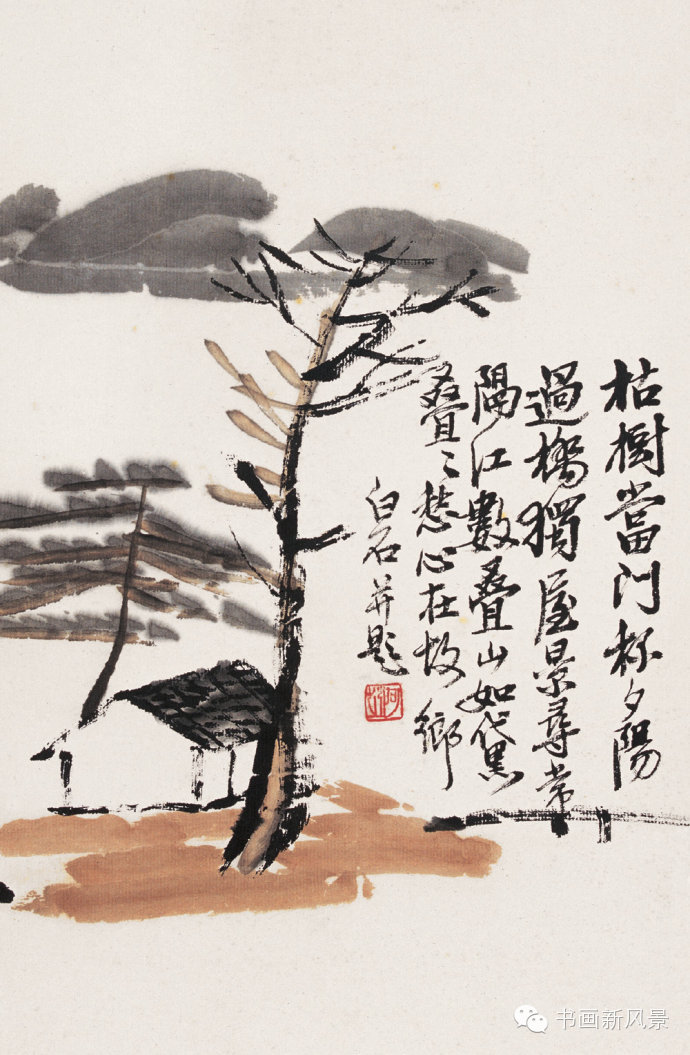 枯樹當門杯夕陽
過橋獨屋景尋常
隔江數叠山如黛
叠〻愁心在故鄉
白石并題
阿芝
书画新风景